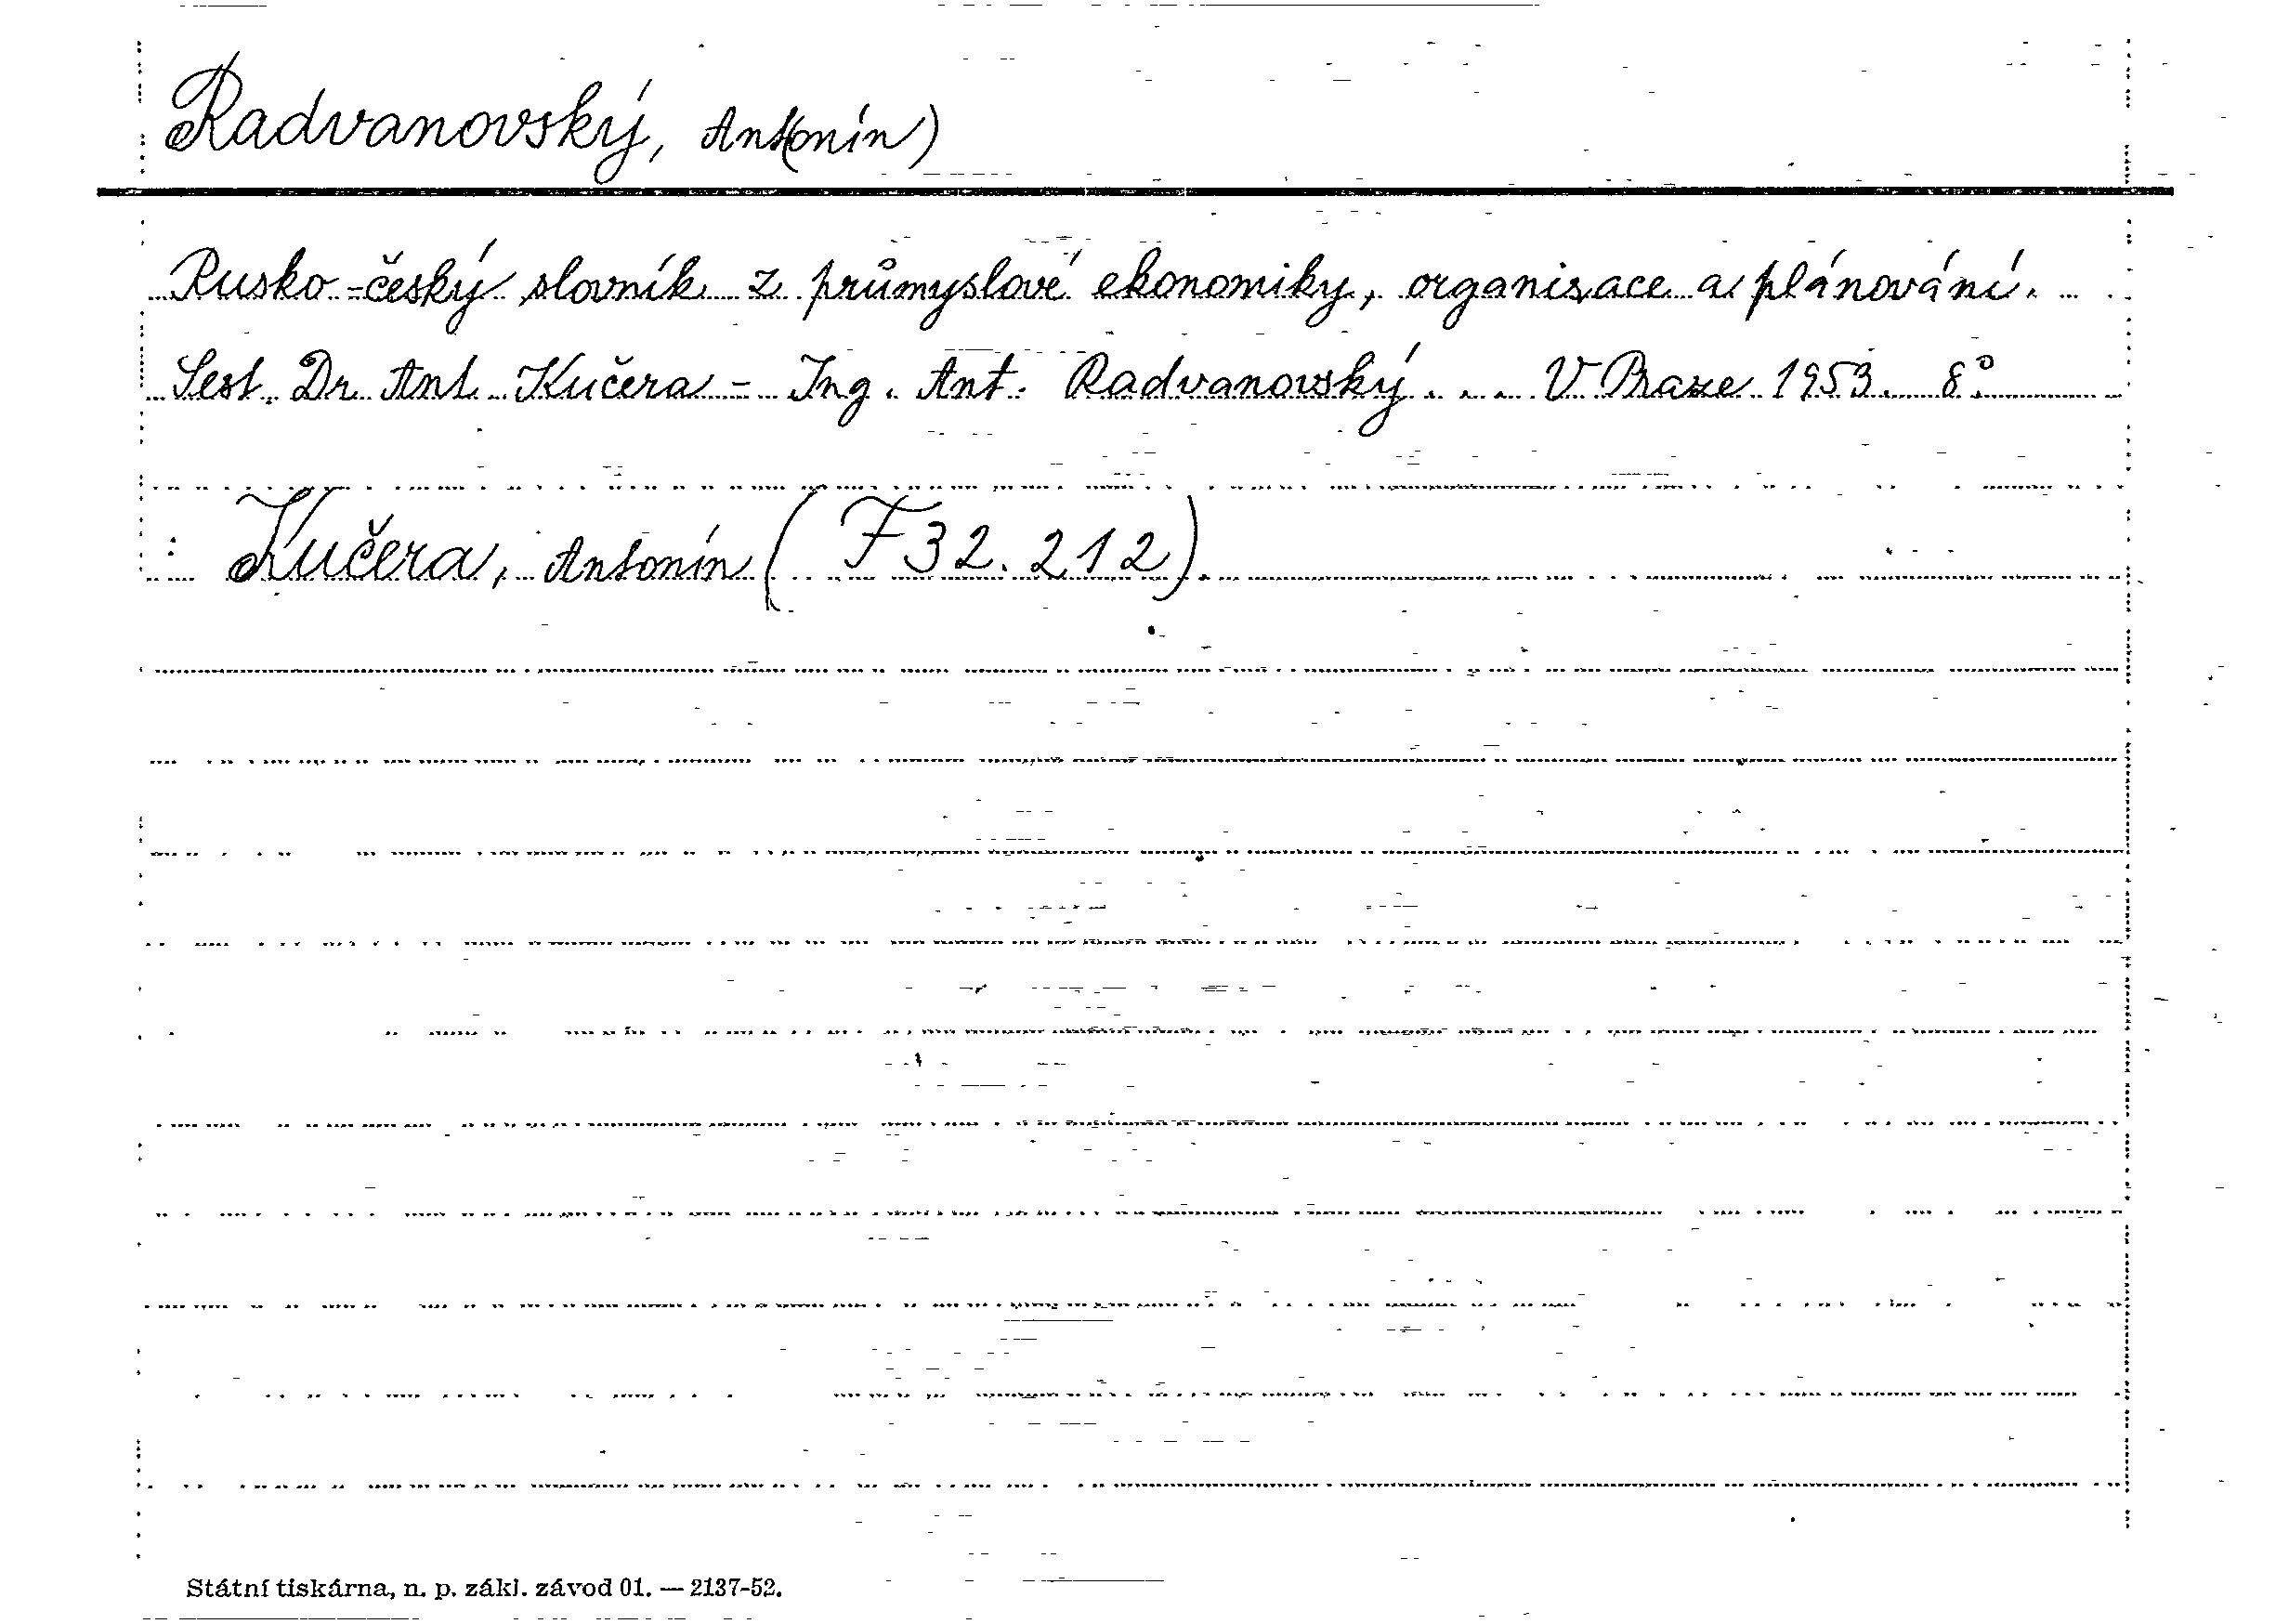 Radvanovský, Ant(onín)
Rusko-český slovník z průmyslové ekonomiky, organisace a plánování.
Sest. Dr. Ant. Kučera - Ing. Ant. Radvanovský. . . . V Praze 1953. 8°.
: Kučera, Antonín (F 32.212).
Státní tiskárna, n. p. zákl. závod 01. — 2137-52.